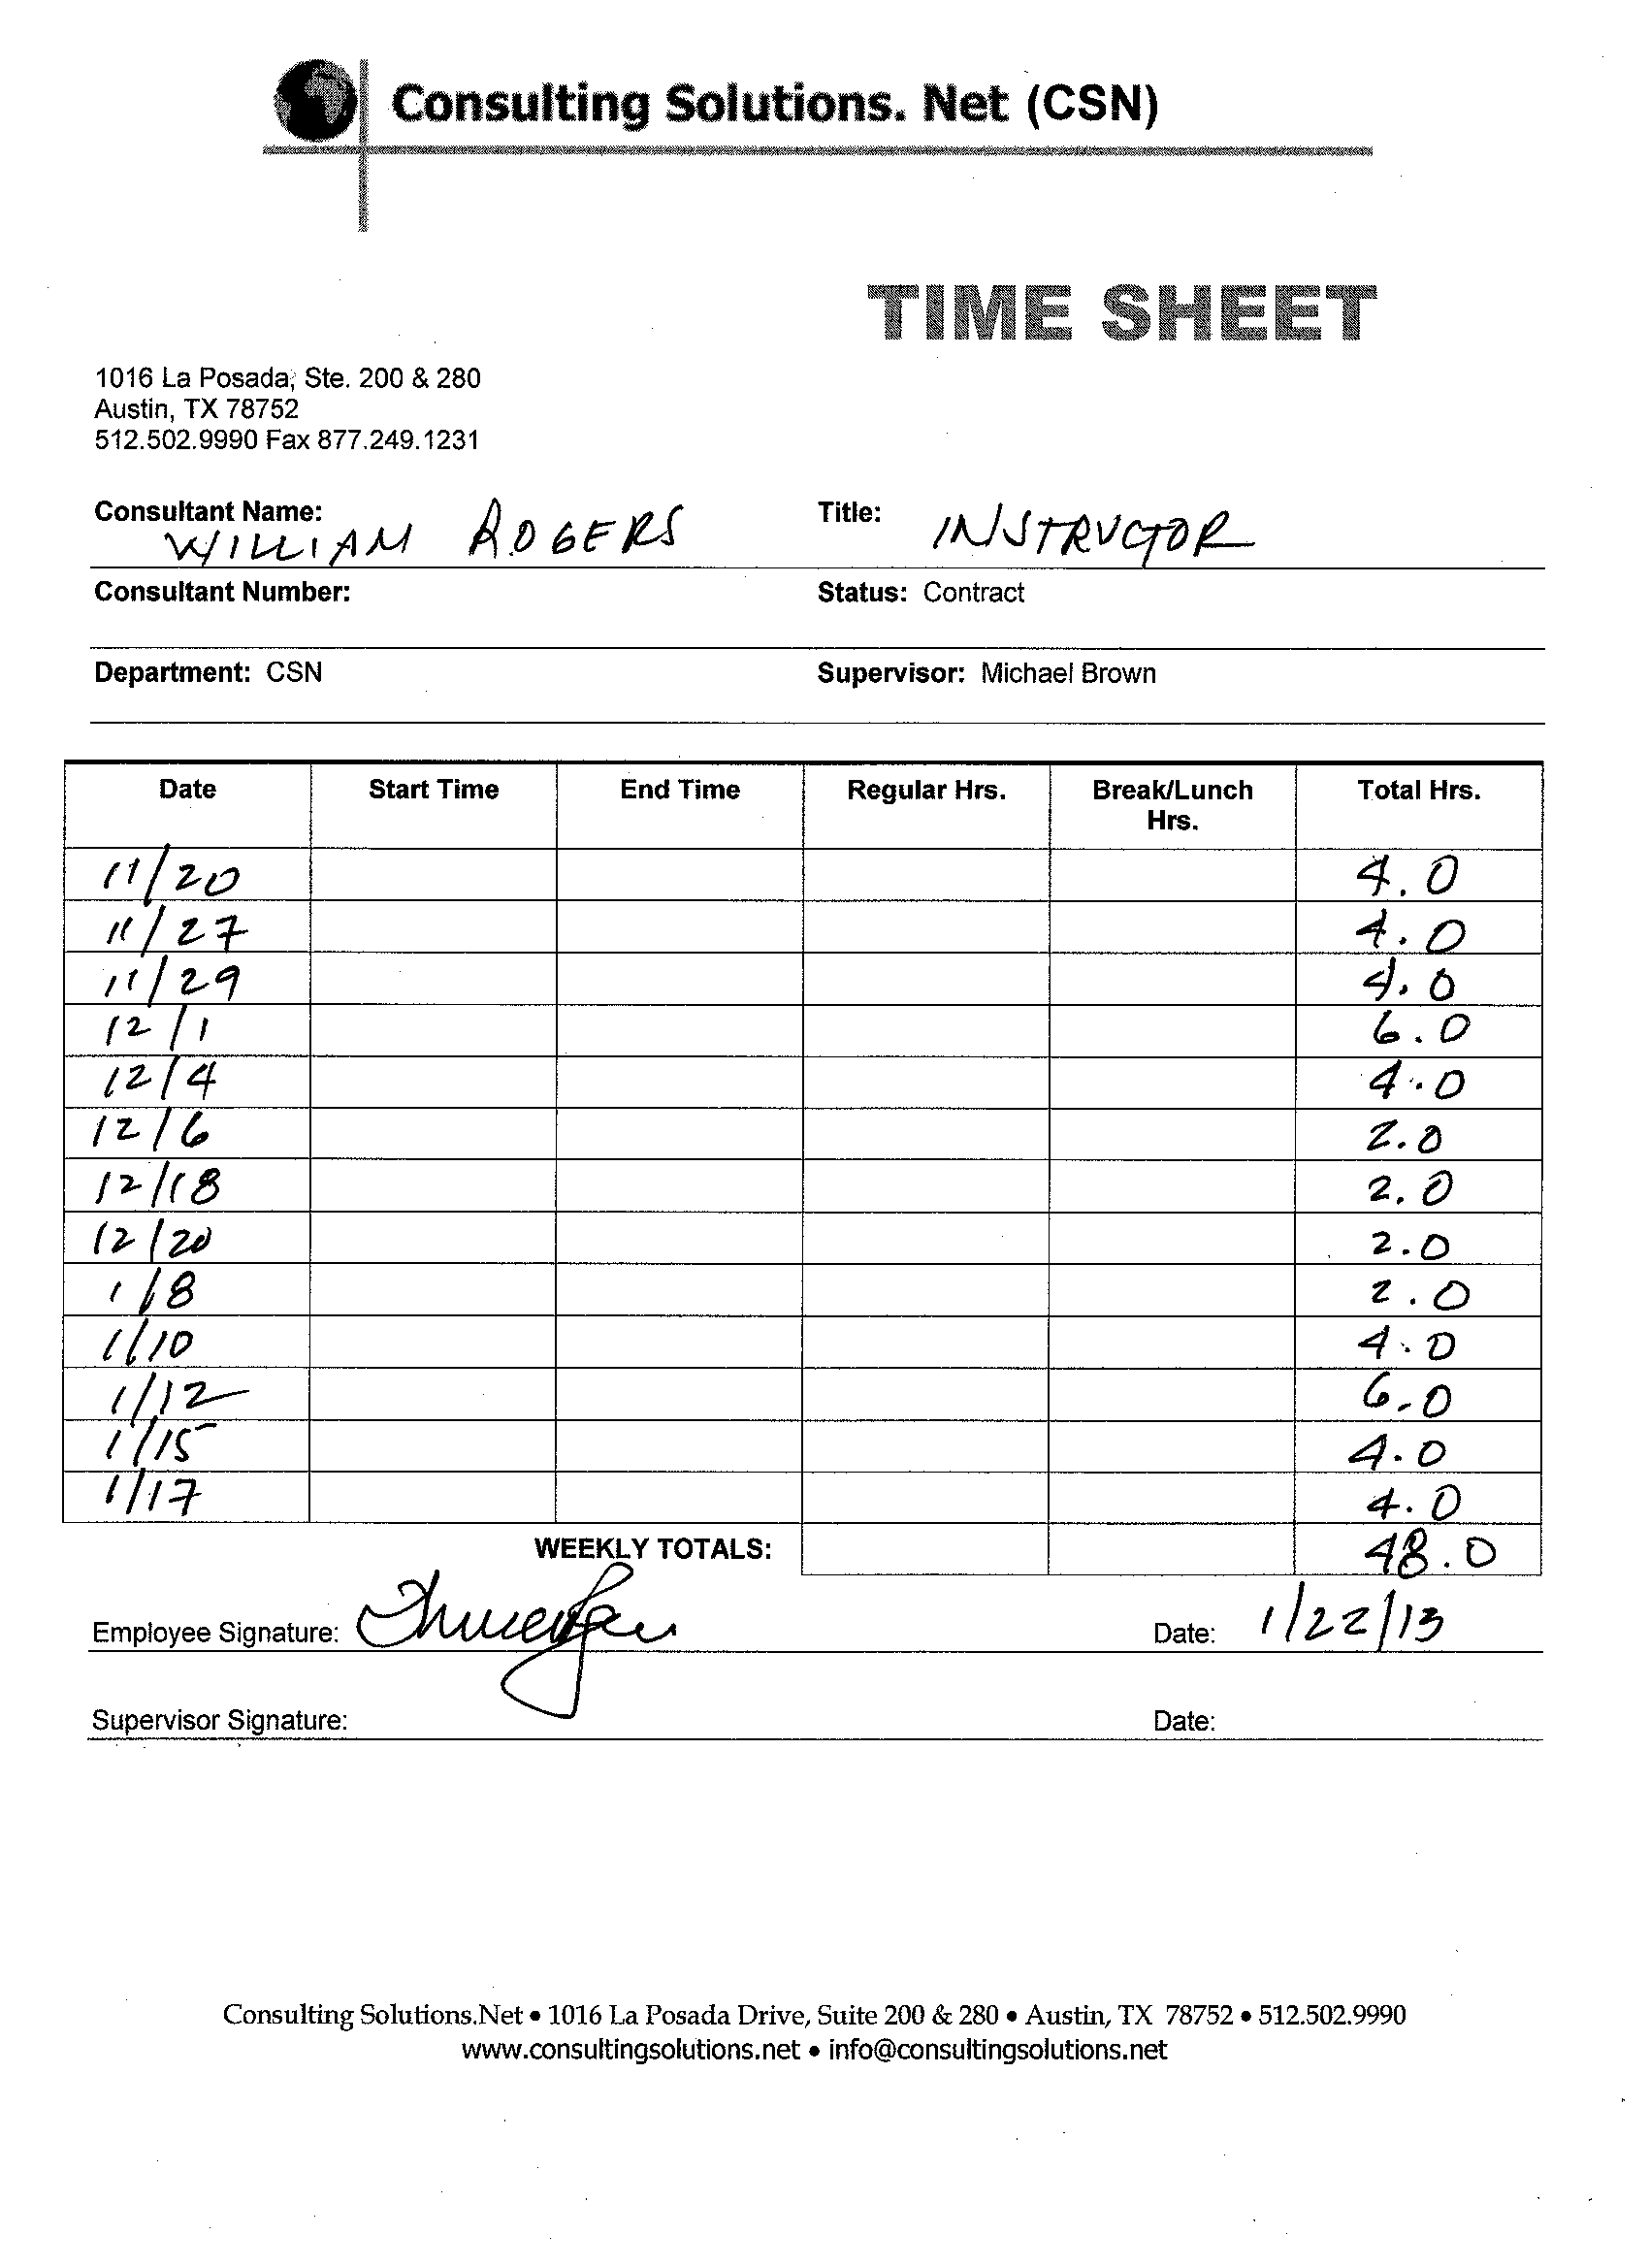 Consulting Solutions. Net (CSN)
TIME SHEET
1016 La Posada, Ste. 200 & 280
Austin, TX 78752
512.502.9990 Fax 877.249.1231
Consultant Name: WILLIAM ROGERS Title: INSTRUCTOR
Consultant Number: Status: Contract
Department: CSN Supervisor: Michael Brown
Date Start Time End Time Regular Hrs. Break/Lunch Hrs. Total Hrs.
11/20 4.0
11/27 4.0
11/29 4.0
12/1 6.0
12/4 4.0
12/6 2.0
12/18 2.0
12/20 2.0
1/8 2.0
1/10 4.0
1/12 6.0
1/15 4.0
1/17 4.0
WEEKLY TOTALS: 48.0
Employee Signature: Date: 1/22/13
Supervisor Signature: Date:
Consulting Solutions.Net • 1016 La Posada Drive, Suite 200 & 280 • Austin, TX 78752 • 512.502.9990
www.consultingsolutions.net • info@consultingsolutions.net